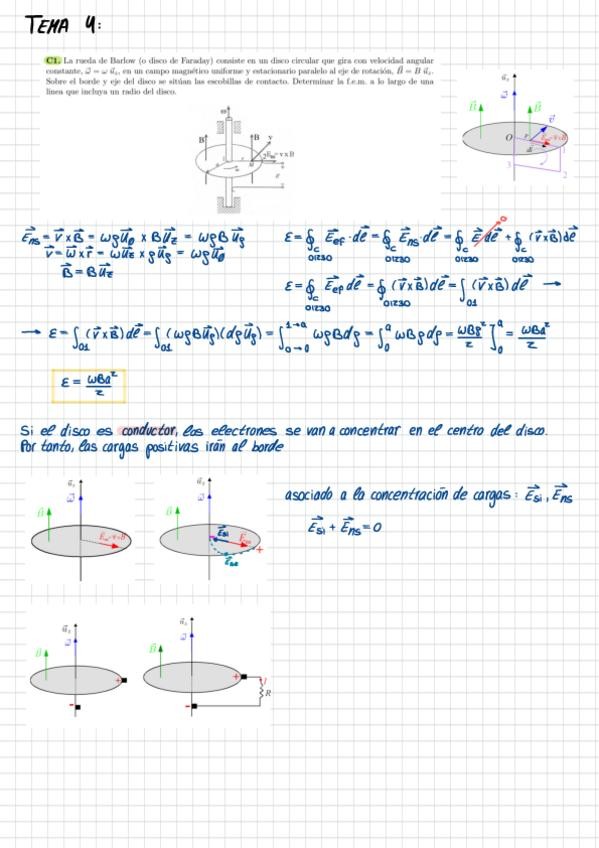 TEMA 4:
C1. La rueda de Barlow (o disco de Faraday) consiste en un disco circular que gira con velocidad angular
constante, ω⃗ = ω u⃗z, en un campo magnético uniforme y estacionario paralelo al eje de rotación, B⃗ = B u⃗z.
Sobre el borde y eje del disco se sitúan las escobillas de contacto. Determinar la f.e.m. a lo largo de una
línea que incluya un radio del disco.
E⃗ns = v⃗ x B⃗ = ωρu⃗θ x Bu⃗z = ωρBu⃗ρ
v⃗ = ω⃗ x r⃗ = ωu⃗z x ρu⃗ρ = ωρu⃗θ
B⃗ = Bu⃗z
ε = ∮c 01230 E⃗ef · dℓ⃗ = ∮c 01230 E⃗ns · dℓ⃗ = ∮c 01230 E⃗ dℓ⃗ 0 + ∮c 01230 (v⃗ x B⃗) dℓ⃗
ε = ∮c 01230 E⃗ef dℓ⃗ = ∮c 01230 (v⃗ x B⃗) dℓ⃗ = ∫01 (v⃗ x B⃗) dℓ⃗ →
→ ε = ∫01 (v⃗ x B⃗) dℓ⃗ = ∫01 (ωρBu⃗ρ)(dρu⃗ρ) = ∫0→0 1→a ωρBdρ = ∫0 a ωBρdρ = ωBρ²/2 ]0 a = ωBa²/2
ε = ωBa²/2
Si el disco es conductor, los electrones se van a concentrar en el centro del disco.
Por tanto, las cargas positivas irán al borde
asociado a la concentración de cargas: E⃗si, E⃗ns
E⃗si + E⃗ns = 0